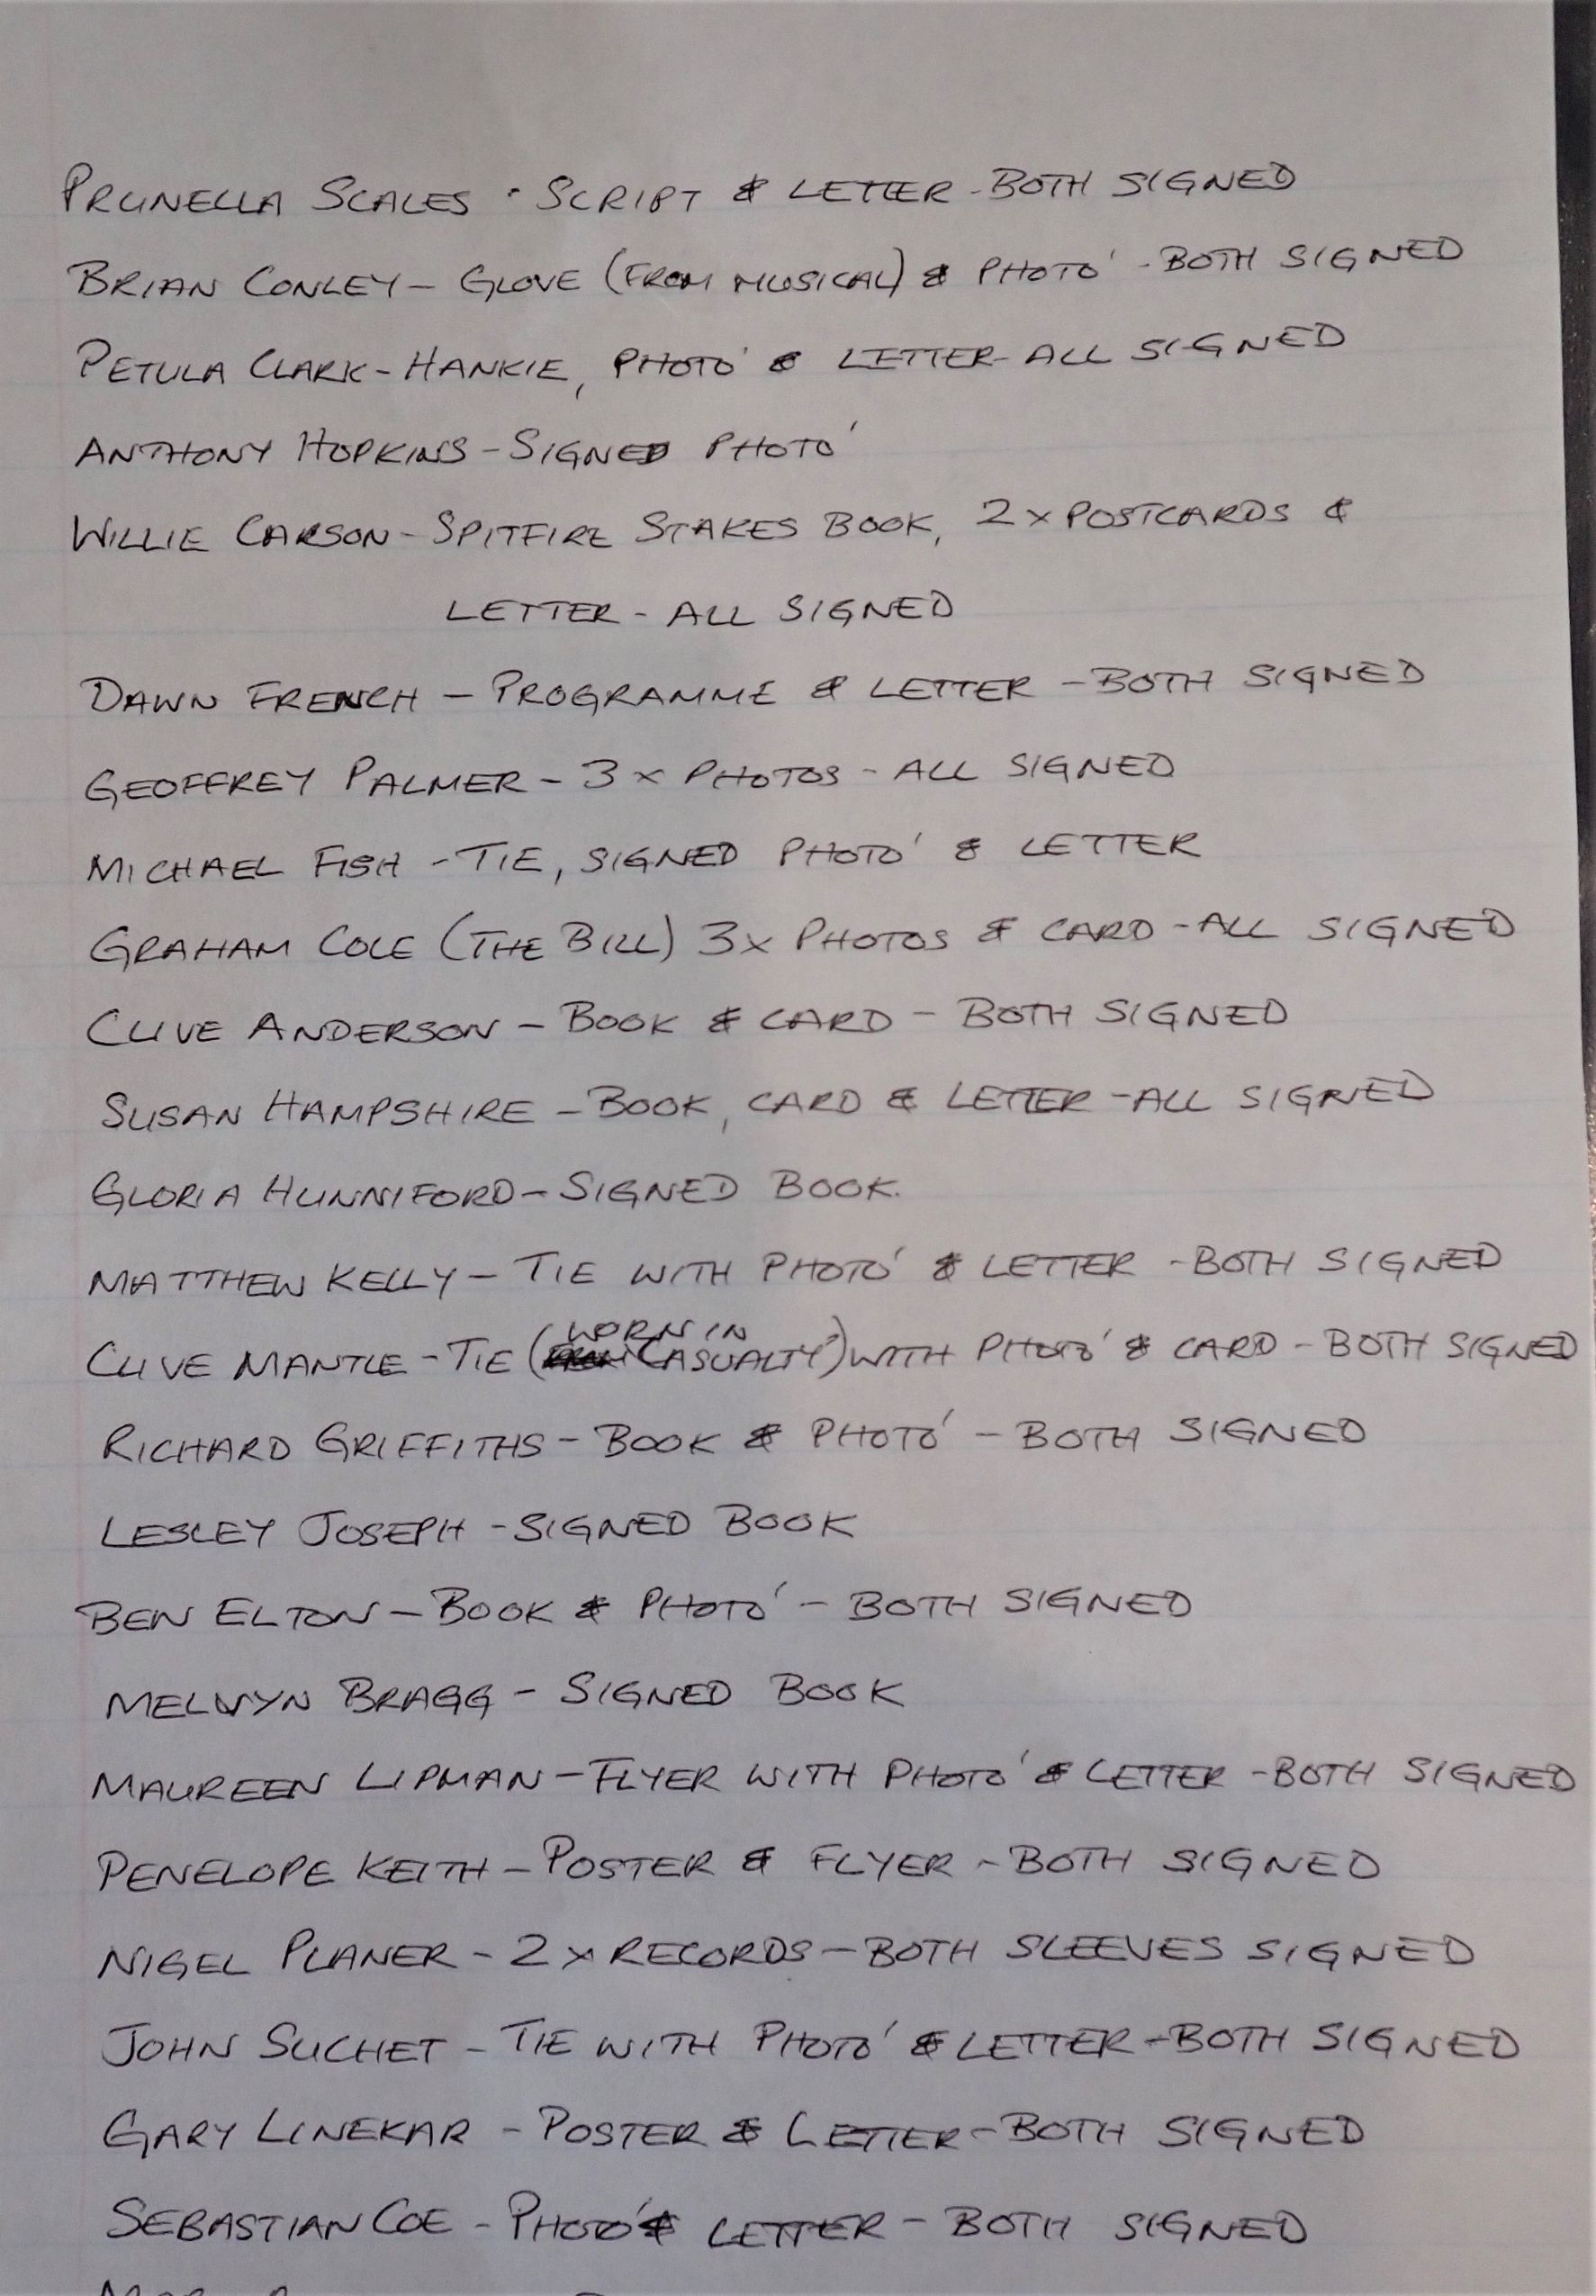 PRUNELLA SCALES - SCRIPT & LETTER - BOTH SIGNED
BRIAN CONLEY - GLOVE (FROM MUSICAL) & PHOTO' - BOTH SIGNED
PETULA CLARK - HANKIE, PHOTO' & LETTER - ALL SIGNED
ANTHONY HOPKINS - SIGNED PHOTO'
WILLIE CARSON - SPITFIRE STAKES BOOK, 2 x POSTCARDS &
LETTER - ALL SIGNED
DAWN FRENCH - PROGRAMME & LETTER - BOTH SIGNED
GEOFFREY PALMER - 3 x PHOTOS - ALL SIGNED
MICHAEL FISH - TIE, SIGNED PHOTO' & LETTER
GRAHAM COLE (THE BILL) 3x PHOTOS & CARD - ALL SIGNED
CLIVE ANDERSON - BOOK & CARD - BOTH SIGNED
SUSAN HAMPSHIRE - BOOK, CARD & LETTER - ALL SIGNED
GLORIA HUNNIFORD - SIGNED BOOK.
MATTHEW KELLY - TIE WITH PHOTO' & LETTER - BOTH SIGNED
CLIVE MANTLE - TIE (WORN IN CASUALTY) WITH PHOTO' & CARD - BOTH SIGNED
RICHARD GRIFFITHS - BOOK & PHOTO' - BOTH SIGNED
LESLEY JOSEPH - SIGNED BOOK
BEN ELTON - BOOK & PHOTO' - BOTH SIGNED
MELVYN BRAGG - SIGNED BOOK
MAUREEN LIPMAN - FLYER WITH PHOTO' & LETTER - BOTH SIGNED
PENELOPE KEITH - POSTER & FLYER - BOTH SIGNED
NIGEL PLANER - 2 x RECORDS - BOTH SLEEVES SIGNED
JOHN SUCHET - TIE WITH PHOTO' & LETTER - BOTH SIGNED
GARY LINEKAR - POSTER & LETTER - BOTH SIGNED
SEBASTIAN COE - PHOTO' & LETTER - BOTH SIGNED